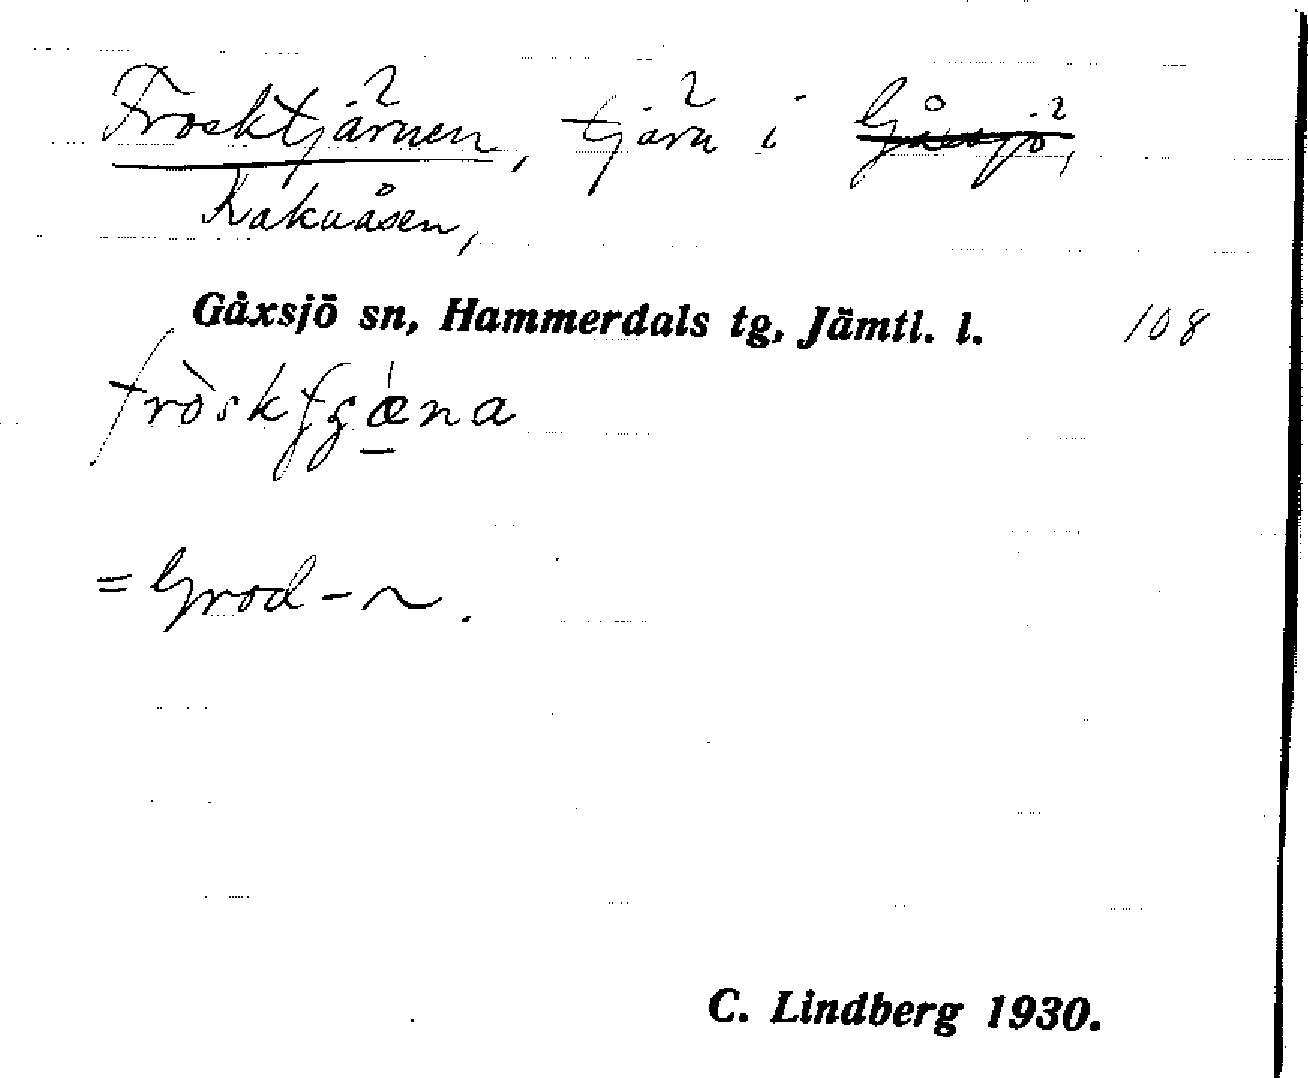 Frosktjärnen, tjärn i Gåxsjö,
Kakuåsen,
Gåxsjö sn, Hammerdals tg, Jämtl. l. 108
= Grod- ~.
C. Lindberg 1930.